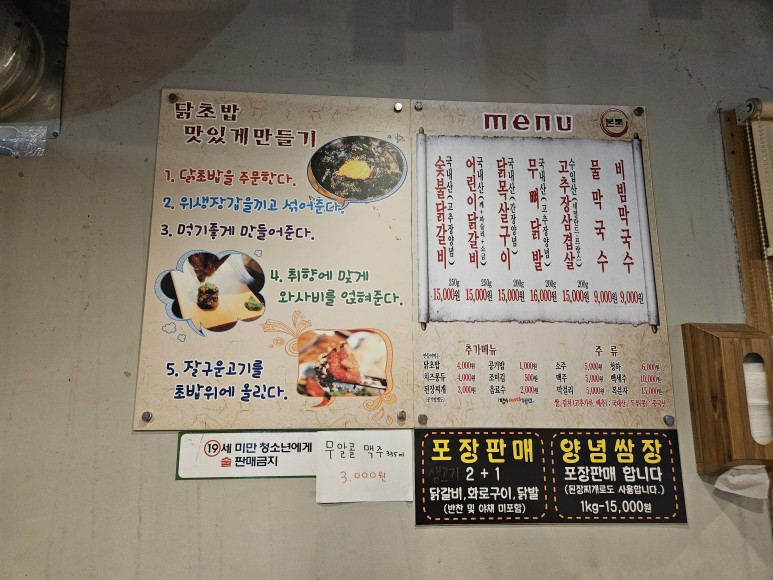 닭초밥
맛있게만들기
1. 닭초밥을 주문한다.
2. 위생장갑을끼고 섞어준다.
3. 먹기좋게 만들어준다.
4. 취향에 맞게
와사비를 얹혀준다.
5. 잘구운고기를
초밥위에 올린다.
menu
본토
숯불닭갈비 국내산(고추장양념) 250g 15,000원
어린이닭갈비 국내산 250g 15,000원
닭목살구이 국내산(간장양념) 200g 15,000원
무뼈닭발 국내산(고추장양념) 200g 16,000원
고추장삼겹살 수입산 200g 15,000원
물막국수 9,000원
비빔막국수 9,000원
추가메뉴
닭초밥 4,000원 공기밥 1,000원
치즈퐁듀 4,000원 조미김 500원
된장찌개 3,000원 음료수 2,000원
주 류
소주 5,000원 청하 6,000원
맥주 5,000원 백세주 10,000원
막걸리 5,000원 복분자 15,000원
쌀, 김치(고추가루, 배추): 국내산, 두부(콩): 중국산
19세 미만 청소년에게
술 판매금지
무알콜 맥주
3.000원
포장판매
생고기 2+1
닭갈비, 화로구이, 닭발
(반찬 및 야채 미포함)
양념쌈장
포장판매 합니다
(된장찌개로도 사용합니다.)
1kg-15,000원